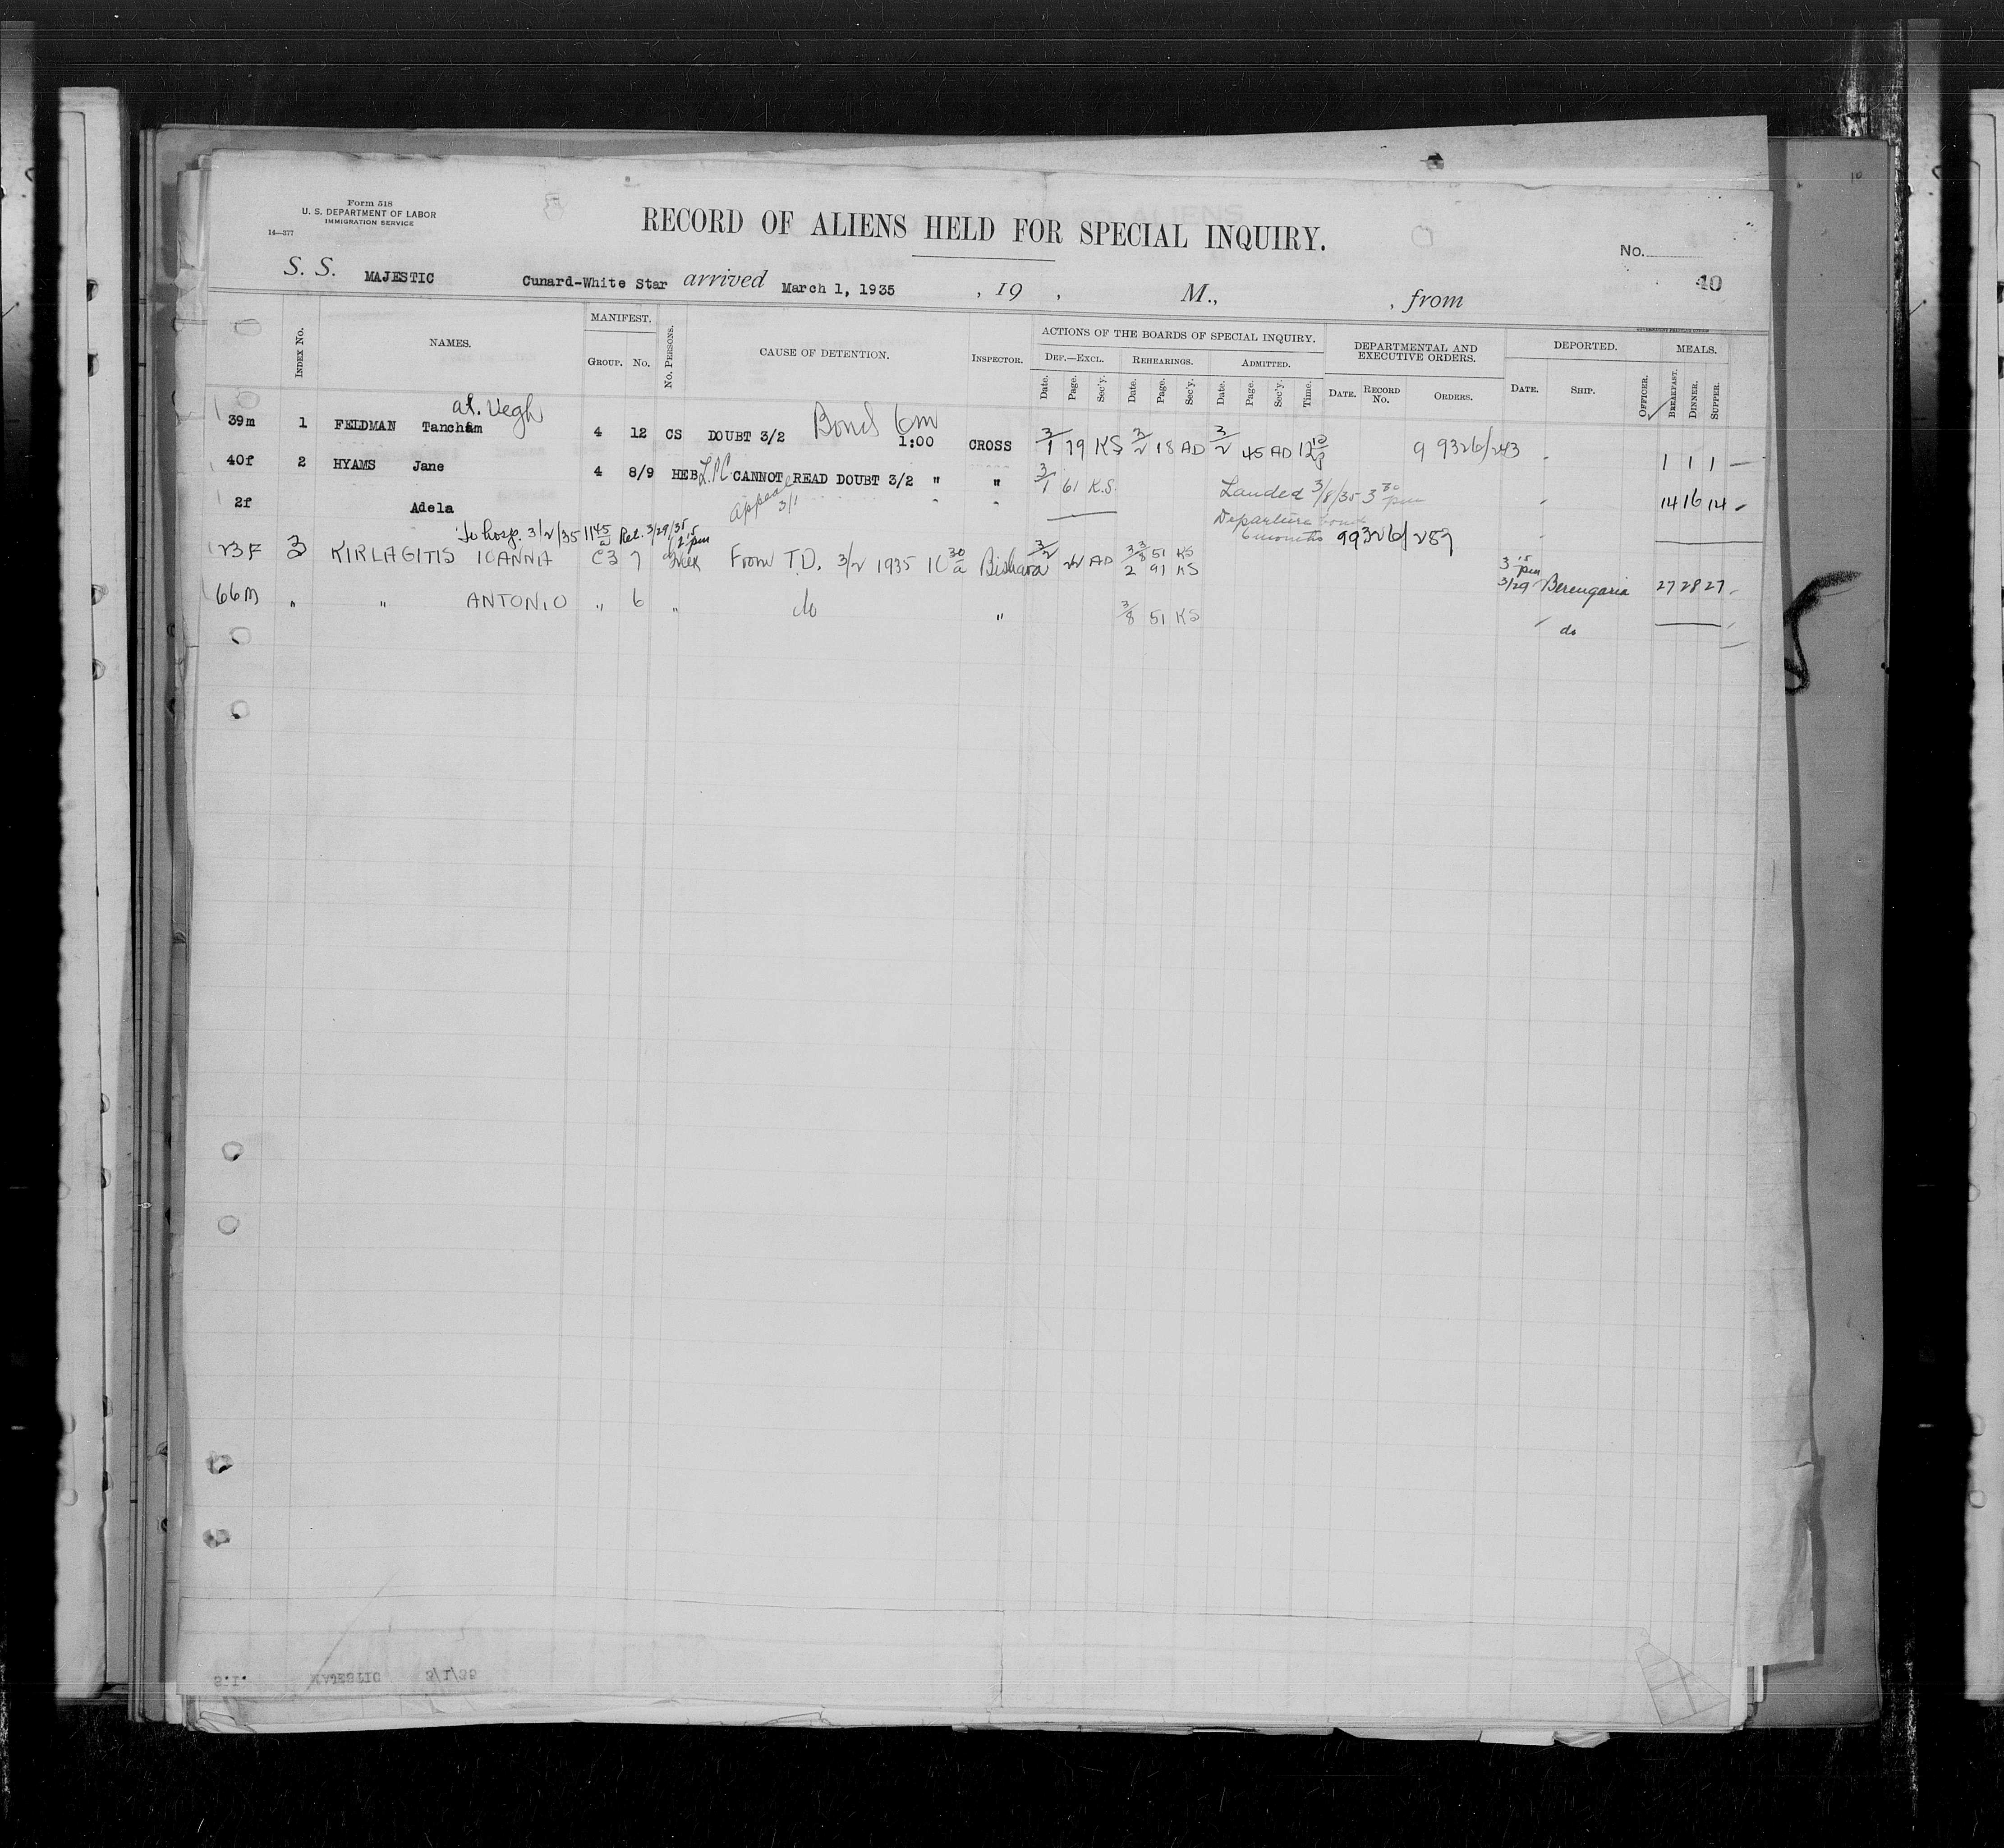 Form 518
U. S. DEPARTMENT OF LABOR
IMMIGRATION SERVICE
14—377
RECORD OF ALIENS HELD FOR SPECIAL INQUIRY.
No.
40
S. S. MAJESTIC Cunard-White Star arrived March 1, 1935 , 19 , M., , from
INDEX No. NAMES. MANIFEST. GROUP. No. No. PERSONS. CAUSE OF DETENTION. INSPECTOR. ACTIONS OF THE BOARDS OF SPECIAL INQUIRY. DEF.—EXCL. Date. Page. Sec'y. REHEARINGS. Date. Page. Sec'y. ADMITTED. Date. Page. Sec'y. Time. DEPARTMENTAL AND EXECUTIVE ORDERS. DATE. RECORD No. ORDERS. DEPORTED. DATE. SHIP. OFFICER. MEALS. BREAKFAST. DINNER. SUPPER.
al. Vegh Bond 6m
39m 1 FELDMAN Tancham 4 12 CS DOUBT 3/2 1:00 CROSS 3/1 79 KS 3/2 18 AD 3/2 45 AD 99326/243 1 1 1 —
40f 2 HYAMS Jane 4 8/9 HEB L.P.C CANNOT READ DOUBT 3/2 " " 3/1 61 K.S. Landed 3/8/35 3 30 pm 14 16 14
2f Adela Appeal 3/1 " " Departure bond 6 months 99326/257
To hosp. 3/2/35 11 45 a Rel. 3/29/35 12 15 pm
23F 3 KIRLAGITIS IOANNA C3 7 Greek From T.D. 3/2 1935 10 30 a Bishara 3/2 22 AD 3/8 51 KS 91 KS 3 15 pm 3/29 Berengaria 27 28 27
66m " " ANTONIO " 6 " do " 3/8 51 KS do
S.I. MAJESTIC 3/1/35